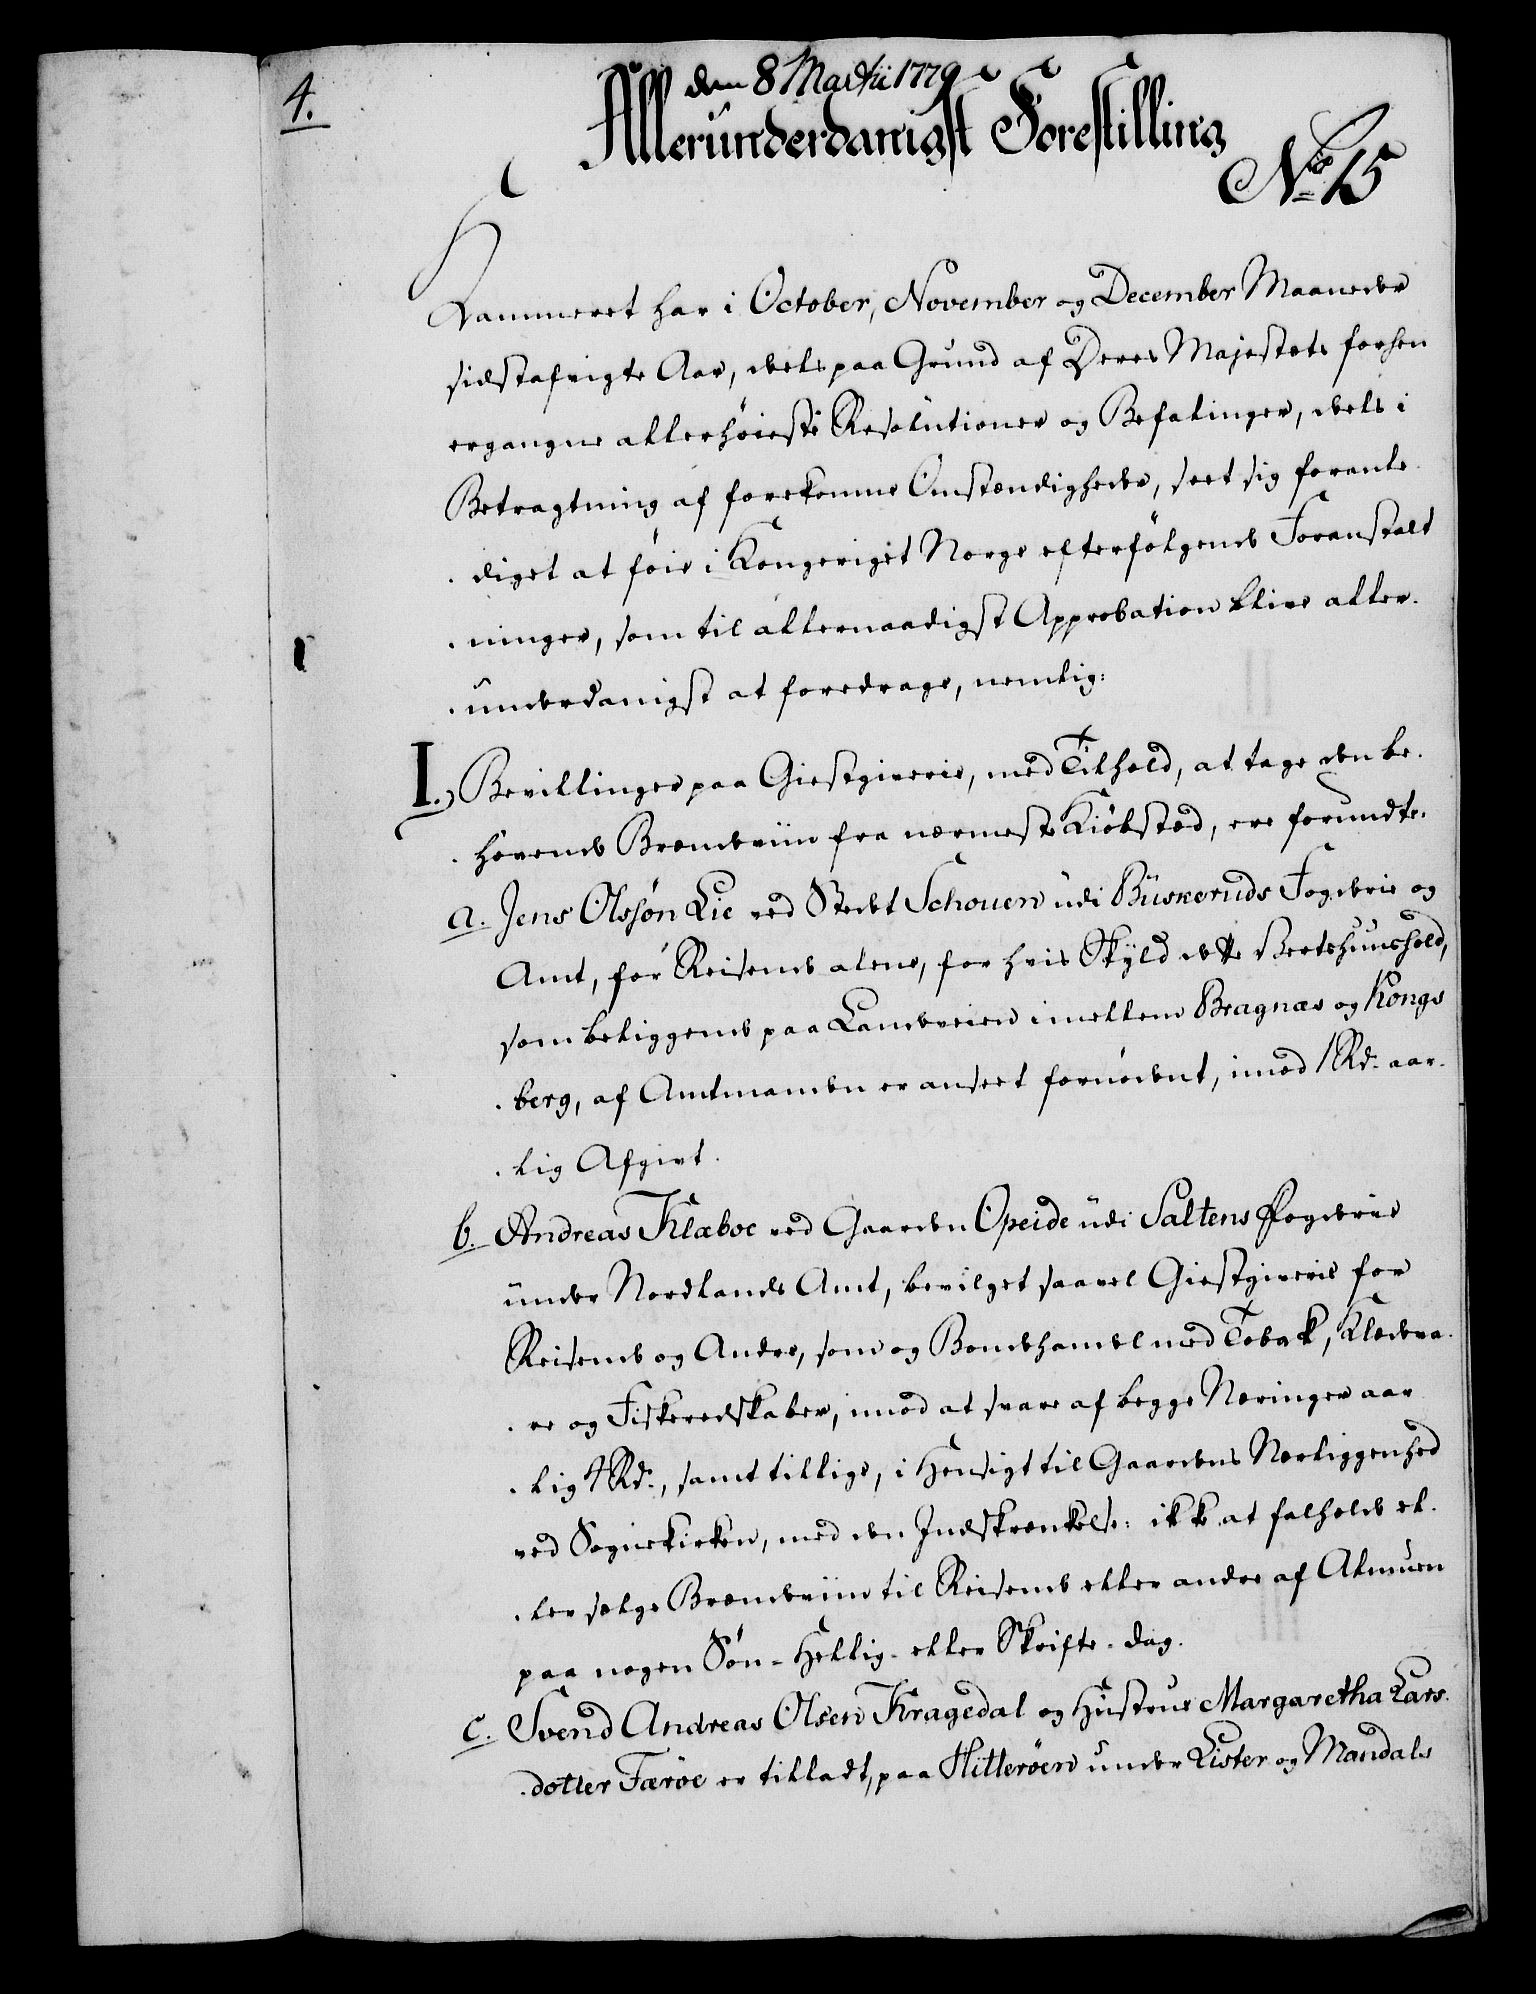 4.
den 8 Martii 1779
Allerunderdanigst Forestilling
No. 15
Kammeret har i October, November og December Maaneder
sidstafvigte Aar, dels paa Grund af Deres Majestæts forhen
ergangne allerhöieste Resolutioner og Befalinger, dels i
Betragtning af forekomne Omstændigheder, seet sig foranle-
diget at föie i Kongeriget Norge efterfölgende Foranstalt
ninger, som til allernaadigst Approbation blive aller-
underdanigst at foredrage, nemlig:
I.) Bevillinger paa Giestgiverie, med Tilhold, at tage den be-
hövende Brændeviin fra nærmeste Kiöbstæd, ere forundte.
a. Jens Olssøn Lie ved Stedet Schouen udi Büskeruds Fogderie og
Amt, for Reisende alene, for hvis Skyld dette Vertshuushold,
som beliggende paa Landeveien imellem Bragnæs og Kongs
berg, af Amtmanden er anseet fornödent, imod 1 Rd. aar-
lig Afgivt.
b. Andreas Klæboe ved Gaarden Opeide udi Saltens Fogderie
under Nordlands Amt, bevilget saavel Giestgiverie for
Reisende og Andre, som og Bondehandel med Tobak, Klædeva-
re og Fiskeredskaber, imod at svare af begge Næringer aar
lig 4 Rd., samt tillige, i Hensigt til Gaardens Nærliggenhed
ved Sognekirken, med den Indskrænkelse: ikke at falholde el-
ler sælge Brændeviin til Reisende eller andre af Almuen
paa nogen Sön- Hellig- eller Skrifte-dag.
c. Svend Andreas Olsen Kragedal og Hustrue Margaretha Lars-
dotter Færöe er tilladt, paa Hitteröen under Lister og Mandals